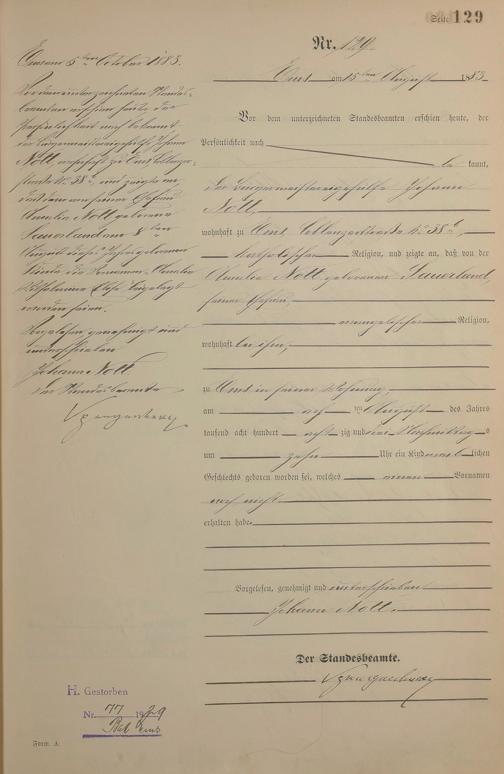 Seite 129
Nr. 129.
Ems am 15ten August 1883
Vor dem unterzeichneten Standesbeamten erschien heute, der
Persönlichkeit nach
be kannt,
der Bürgermeistereigehülfe Johann
Noll,
wohnhaft zu Ems Coblenzerstraße No 38
katholischer Religion, und zeigte an, daß von der
Amalia Noll geborenen Sauerland,
seiner Ehefrau,
evangelischer Religion,
wohnhaft bei ihm,
zu Ems in seiner Wohnung,
am ten August des Jahres
tausend acht hundert acht zig und drei Nachmittags
um zehn Uhr ein Kind lichen
Geschlechts geboren worden sei, welches einen Vornamen
noch nicht
erhalten habe.
Vorgelesen, genehmigt und unterschrieben
Johann Noll.
Der Standesbeamte.
Ems am 5ten October 1883.
Vor dem unterzeichneten Standes-
beamten erschien heute der
Persönlichkeit nach bekannt
der Bürgermeistereigehülfe Johann
Noll, wohnhaft zu Ems Coblenzer-
straße No 38 und zeigte an
daß dem von seiner Ehefrau
Amalia Noll geborene
Sauerland am 8ten
August dieses Jahres geborenen
Kinde die Vornamen
beigelegt
worden seien.
Vorgelesen genehmigt und
unterschrieben
Johann Noll
Der Standesbeamte
H. Gestorben
Nr. 77 19
Bad Ems
Form. A.